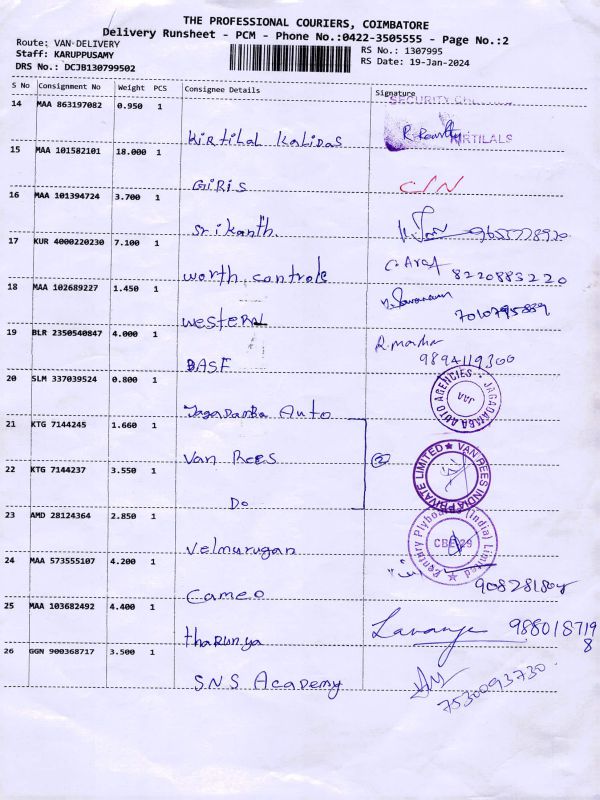 THE PROFESSIONAL COURIERS, COIMBATORE
Delivery Runsheet - PCM - Phone No.:0422-3505555 - Page No.:2
Route: VAN-DELIVERY
Staff: KARUPPUSAMY
DRS No.: DCJB130799502
RS No.: 1307995
RS Date: 19-Jan-2024
S No Consignment No Weight PCS Consignee Details Signature
14 MAA 863197082 0.950 1 Kirtilal Kalidas KIRTILALS
15 MAA 101582101 18.000 1 Giris C/N
16 MAA 101394724 3.700 1 Srikanth
17 KUR 4000220230 7.100 1 worth controls 8220883220
18 MAA 102689227 1.450 1 Western
19 BLR 2350540847 4.000 1 BASF 9894119300
20 SLM 337039524 0.800 1 Jagadamba Auto JAGADAMBA AUTO AGENCIES
21 KTG 7144245 1.660 1 Van Rees VAN REES INDIA PRIVATE LIMITED
22 KTG 7144237 3.550 1 Do
23 AMD 28124364 2.850 1 Velmurugan Century Plyboards (India) Limited CBE 29
24 MAA 573555107 4.200 1 Cameo
25 MAA 103682492 4.400 1 tharunya Lavanya 9880187198
26 GGN 900368717 3.500 1 SNS Academy 7530093730